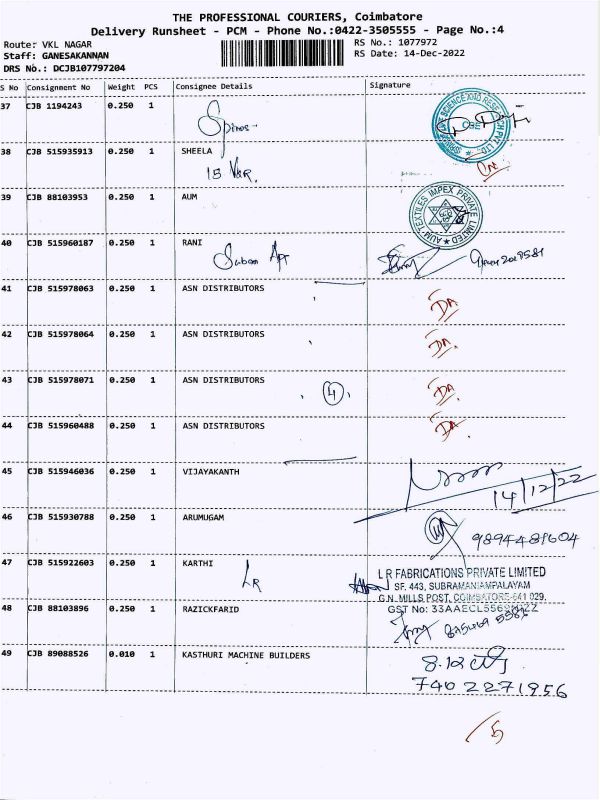 THE PROFESSIONAL COURIERS, Coimbatore
Delivery Runsheet - PCM - Phone No.:0422-3505555 - Page No.:4
Route: VKL NAGAR
RS No.: 1077972
Staff: GANESAKANNAN
RS Date: 14-Dec-2022
DRS No.: DCJB107797204
S No Consignment No Weight PCS Consignee Details Signature
37 CJB 1194243 0.250 1
38 CJB 515935913 0.250 1 SHEELA
39 CJB 88103953 0.250 1 AUM
AUM TEXTILES IMPEX PRIVATE LIMITED
40 CJB 515960187 0.250 1 RANI
41 CJB 515978063 0.250 1 ASN DISTRIBUTORS DA
42 CJB 515978064 0.250 1 ASN DISTRIBUTORS DA
43 CJB 515978071 0.250 1 ASN DISTRIBUTORS 4 DA
44 CJB 515960488 0.250 1 ASN DISTRIBUTORS DA
45 CJB 515946036 0.250 1 VIJAYAKANTH
14/12/22
46 CJB 515930788 0.250 1 ARUMUGAM
47 CJB 515922603 0.250 1 KARTHI
LR
L R FABRICATIONS PRIVATE LIMITED
SF. 443, SUBRAMANIAMPALAYAM
G.N. MILLS POST, COIMBATORE-641 029.
48 CJB 88103896 0.250 1 RAZICKFARID
49 CJB 89088526 0.010 1 KASTHURI MACHINE BUILDERS
7402271956